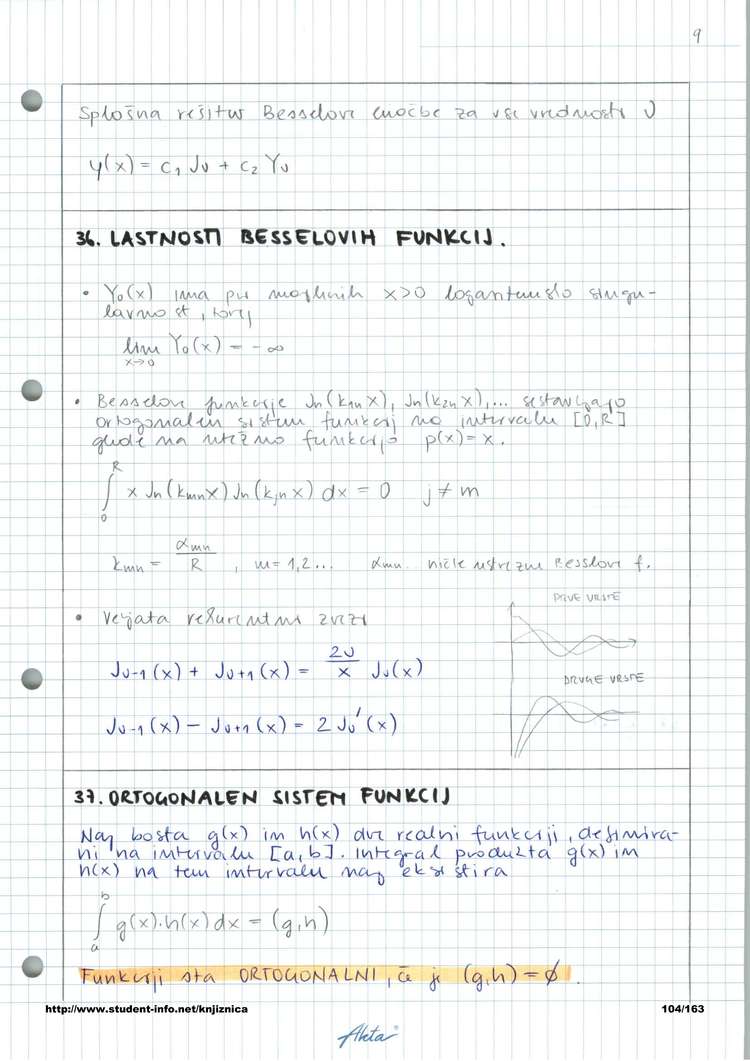 9
Splošna rešitev Besselove enačbe za vse vrednosti ν
y(x) = c₁ Jν + c₂ Yν
36. LASTNOSTI BESSELOVIH FUNKCIJ.
• Y₀(x) ima pri majhnih x>0 logaritemsko singu-
larnost, torej
lim Y₀(x) = -∞
x→0
• Besselove funkcije Jn(k₁n x), Jn(k₂n x),... sestavljajo
ortogonalen sistem funkcij na intervalu [0,R]
glede na utežno funkcijo p(x)=x.
∫₀ᴿ x Jn(kmn x) Jn(kjn x) dx = 0 j ≠ m
kmn = αmn / R , m=1,2... αmn. ničle ustrezne Besslove f.
PRVE VRSTE
• Veljata rekurentni zvezi
Jν-1(x) + Jν+1(x) = 2ν/x Jν(x)
DRUGE VRSTE
Jν-1(x) − Jν+1(x) = 2 Jν'(x)
37. ORTOGONALEN SISTEM FUNKCIJ
Naj bosta g(x) in h(x) dve realni funkciji, definira-
ni na intervalu [a,b]. Integral produkta g(x) in
h(x) na tem intervalu naj eksistira
∫ₐᵇ g(x)·h(x) dx = (g,h)
Funkciji sta ORTOGONALNI, če je (g,h) = ∅.
http://www.student-info.net/knjiznica
104/163
Akta